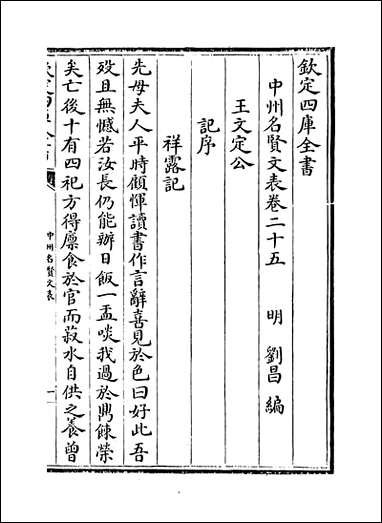 欽定四庫全書
中州名賢文表卷二十五　明　劉昌　編
王文定公
記序
祥露記
先母夫人平時顧惲讀書作言辭喜見於色曰好此吾
歿且無憾若汝長仍能辦日飯一盂啖我過於鼎餗榮
矣亡後十有四祀方得廪食於官而菽水自供之養曾
中州名賢文表
一